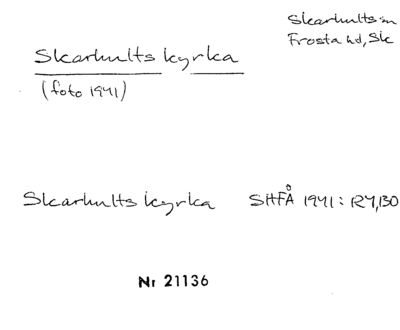 Skarhults sn
Frosta hd, Sk
Skarhults kyrka
(foto 1941)
Skarhults kyrka SHFÅ 1941: R4,130
Nr 21136